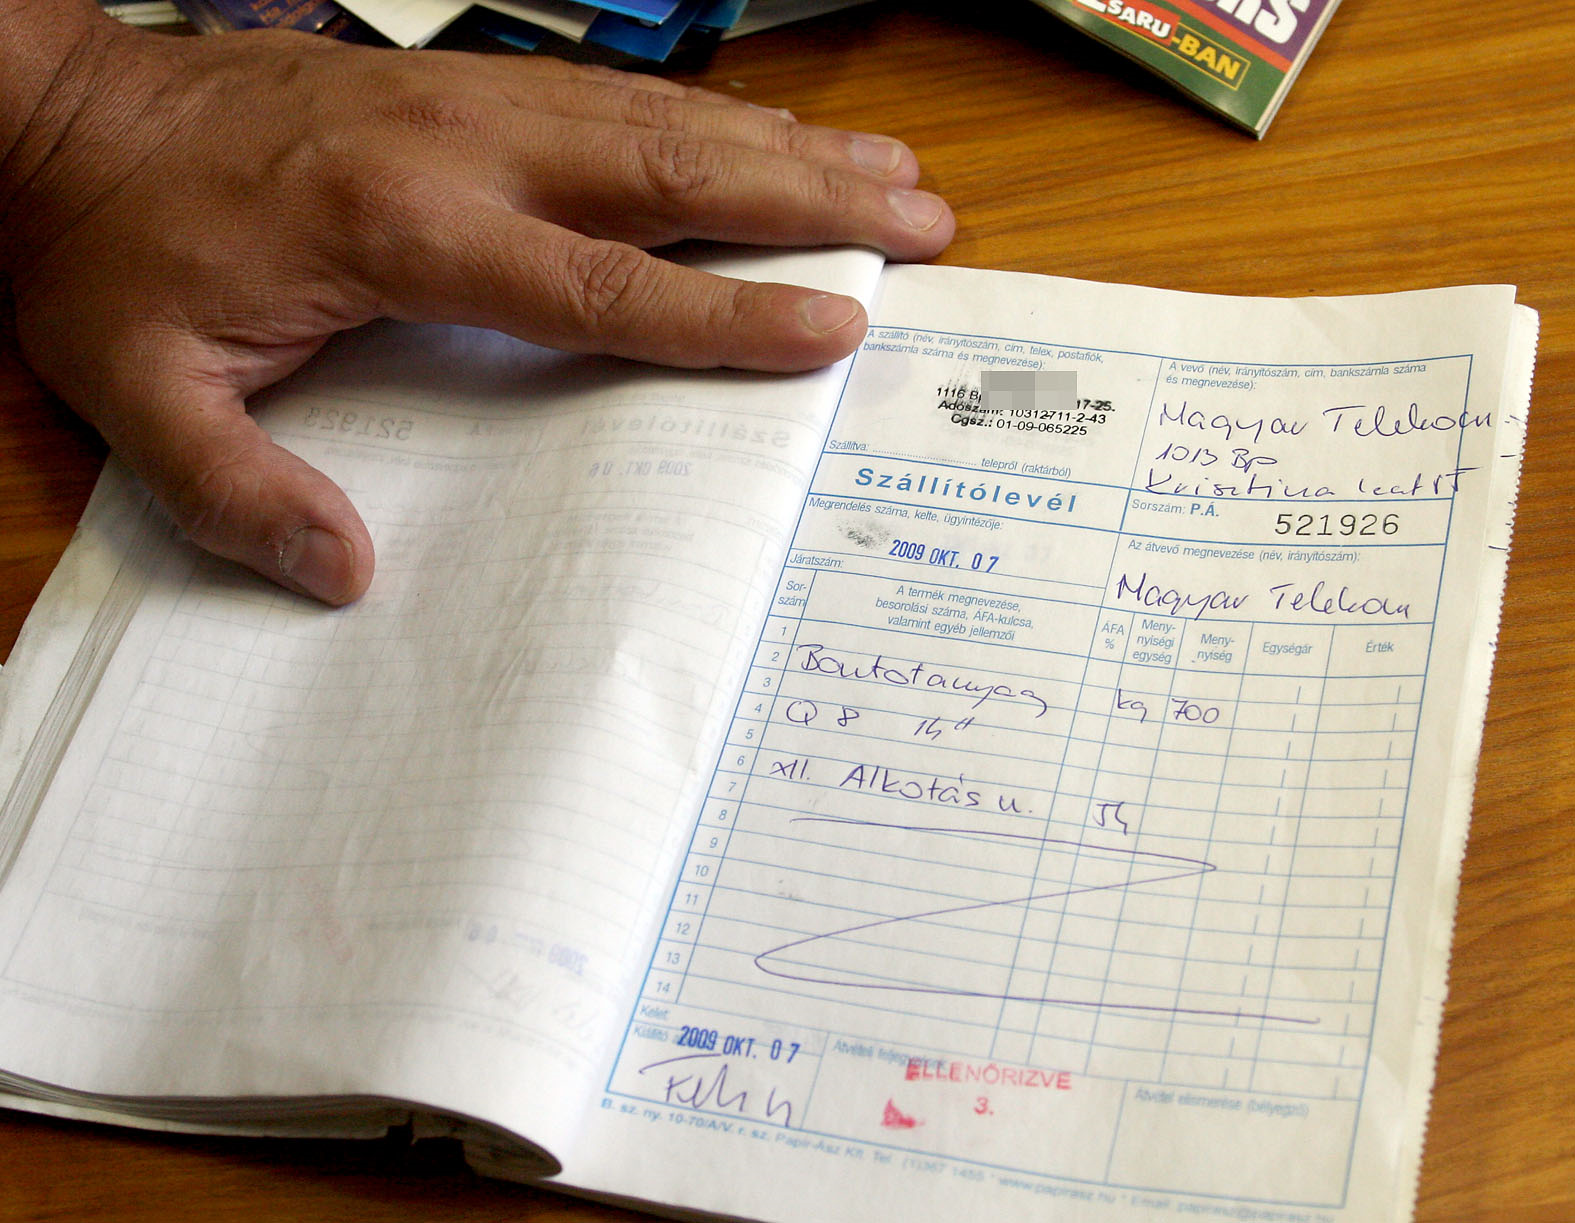 SARU-BAN
A szállító (név, irányítószám, cím, telex, postafiók,
bankszámla száma és megnevezése):
1116 Bp 17-25.
Adószám: 10312711-2-43
Cgsz.: 01-09-065225
Szállítva: telepről (raktárból)
A vevő (név, irányítószám, cím, bankszámla száma
és megnevezése):
Magyar Telekom
1013 Bp
Krisztina krt 55
Szállítólevél
Sorszám: P.Á. 521926
Megrendelés száma, kelte, ügyintézője:
2009 OKT. 07
Járatszám:
Az átvevő megnevezése (név, irányítószám):
Magyar Telekom
Sor-
szám
A termék megnevezése,
besorolási száma, ÁFA-kulcsa,
valamint egyéb jellemzői
ÁFA
%
Meny-
nyiségi
egység
Meny-
nyiség
Egységár
Érték
1
2 Bontotanyag kg 700
3
4 Q 8 14"
5
6 XII. Alkotás u. 54
7
8
9
10
11
12
13
14
Kelet:
2009 OKT. 07
Kiállító
Átvételi feljegyzések:
ELLENŐRIZVE
3.
Átvétel elismerése (bélyegző)
B. sz. ny. 10-70/A/V. r. sz. Papír-Ász Kft. Tel. (1)367 1455 * www.papirasz.hu * Email: papirasz@papirasz.hu
Szállítólevél
521923
2009 OKT. 06